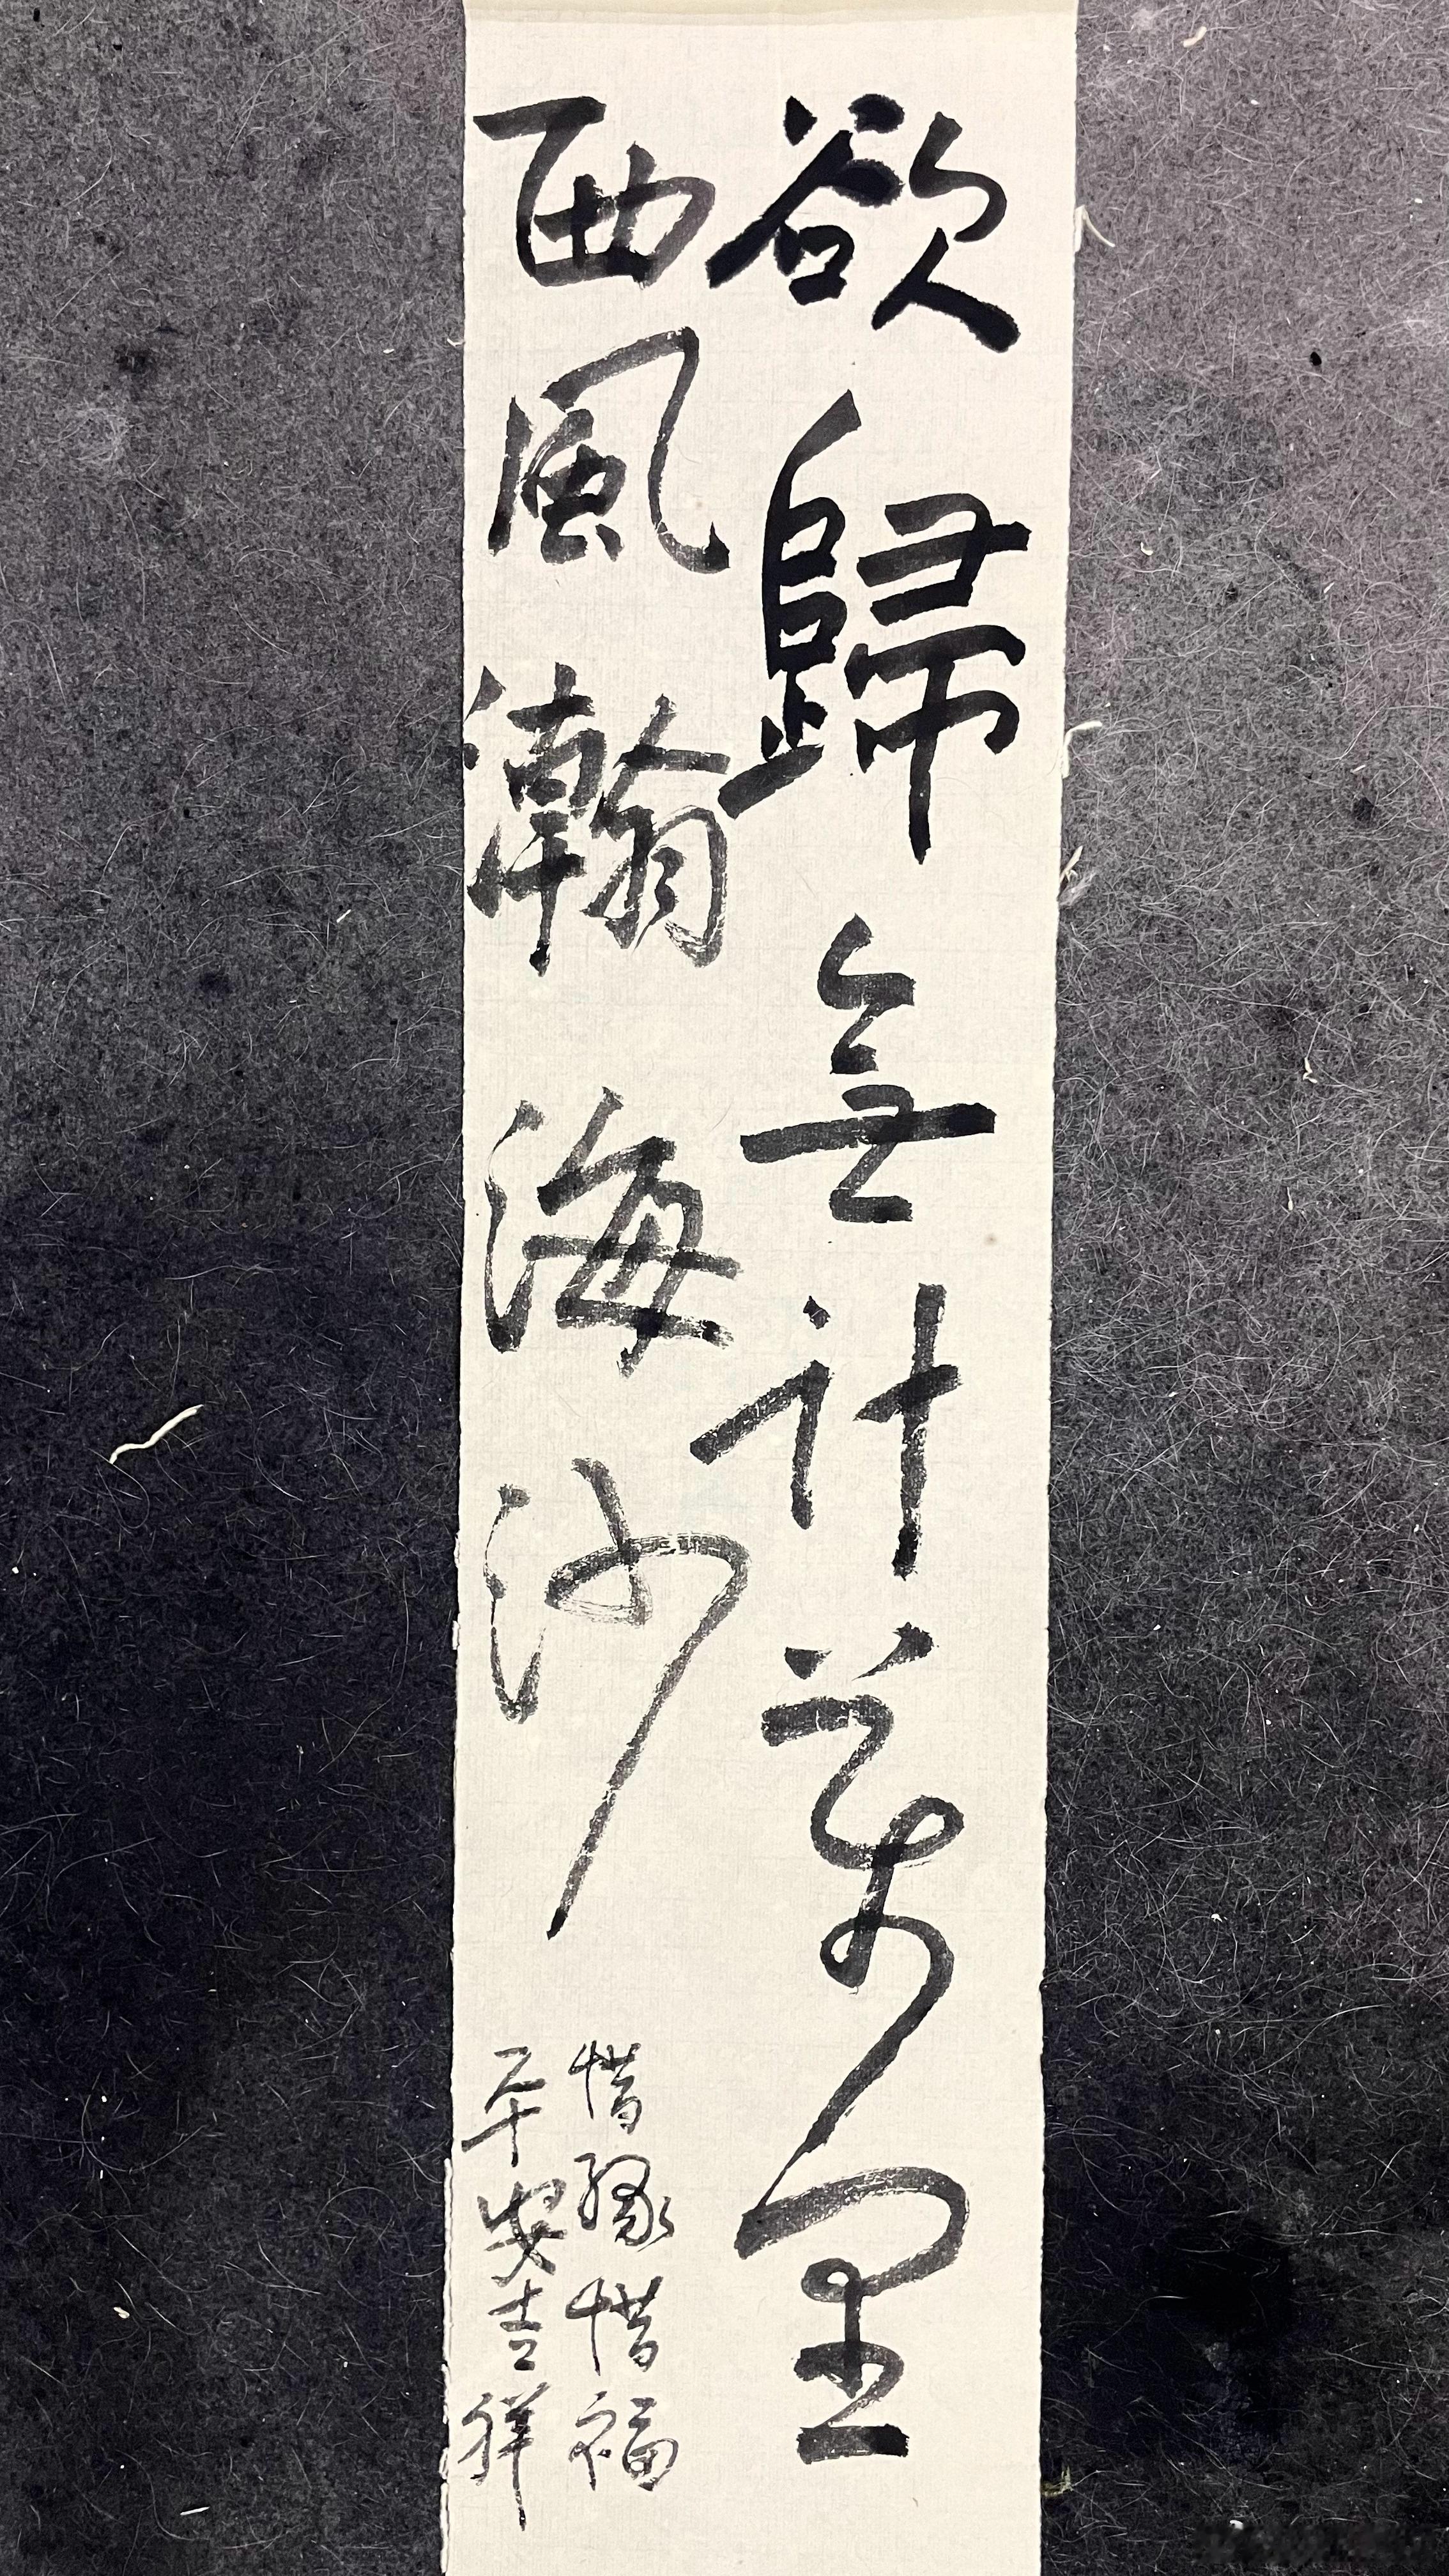 欲歸無計萬里
西風瀚海沙
惜緣惜福
平安吉祥